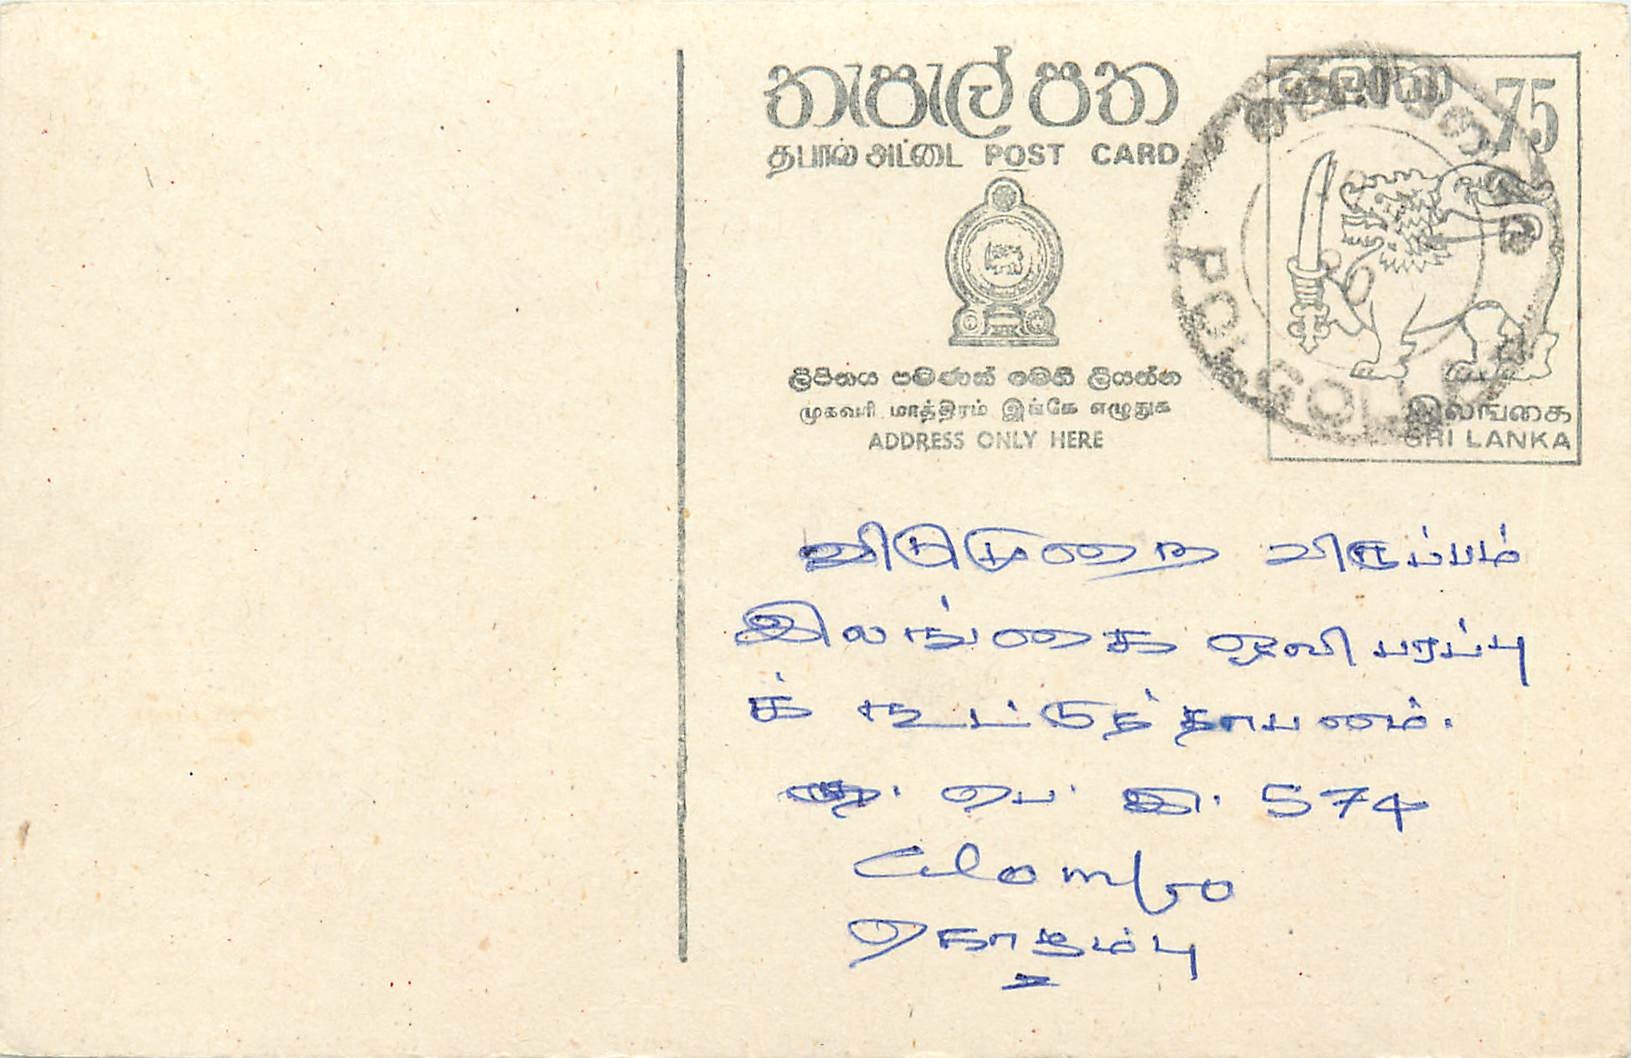 තැපැල් පත
தபால் அட்டை POST CARD
ලිපිනය පමණක් මෙහි ලියන්න
முகவரி மாத்திரம் இங்கே எழுதுக
ADDRESS ONLY HERE
75
இலங்கை
SRI LANKA
விடுமுறை விருப்பம்
இலங்கை ஒலிபரப்பு
க் கூட்டுத்தாபனம்.
த. பெ. இ. 574
Colombo
கொழும்பு